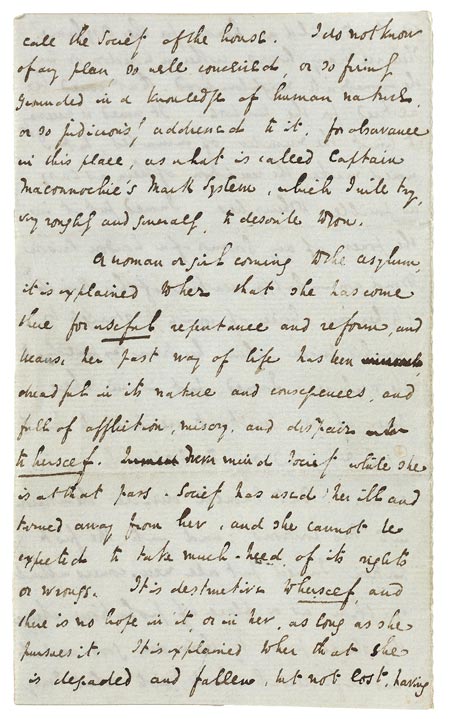 call the Society of the house. I do not know
of any plan, so well conceived, or so firmly
grounded in a knowledge of human nature,
or so judiciously addressed to it, for observance
in this place, as what is called Captain
Maconnochie's Mark System, which I will try,
very roughly and generally, to describe to you.
A woman or girl coming to the asylum,
it is explained to her that she has come
there for useful repentance and reform, and
because her past way of life has been
dreadful in its nature and consequences, and
full of affliction, misery, and despair
to herself. Never mind Society while she
is at that pass. Society has used her ill and
turned away from her, and she cannot be
expected to take much heed of its rights
or wrongs. It is destructive to herself, and
there is no hope in it, or in her, as long as she
pursues it. It is explained to her that she
is degraded and fallen, but not lost, having